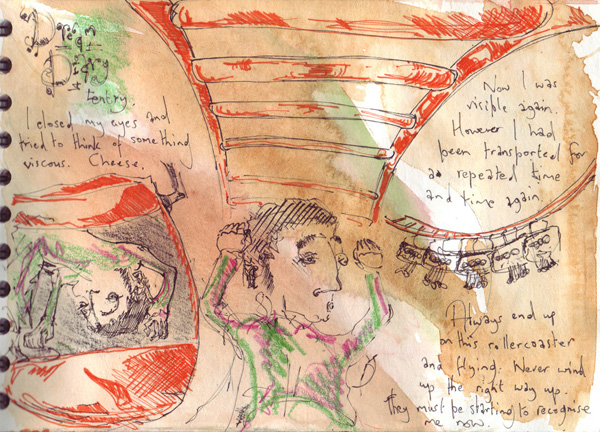 Dream
Diary
1st entry.
I closed my eyes and
tried to think of something
viscous. Cheese.
Now I was
visible again.
However I had
been transported for
a repeated time
and time again.
Always end up
on this rollercoaster
and flying. Never wind
up the right way up.
They must be starting to recognise
me now.